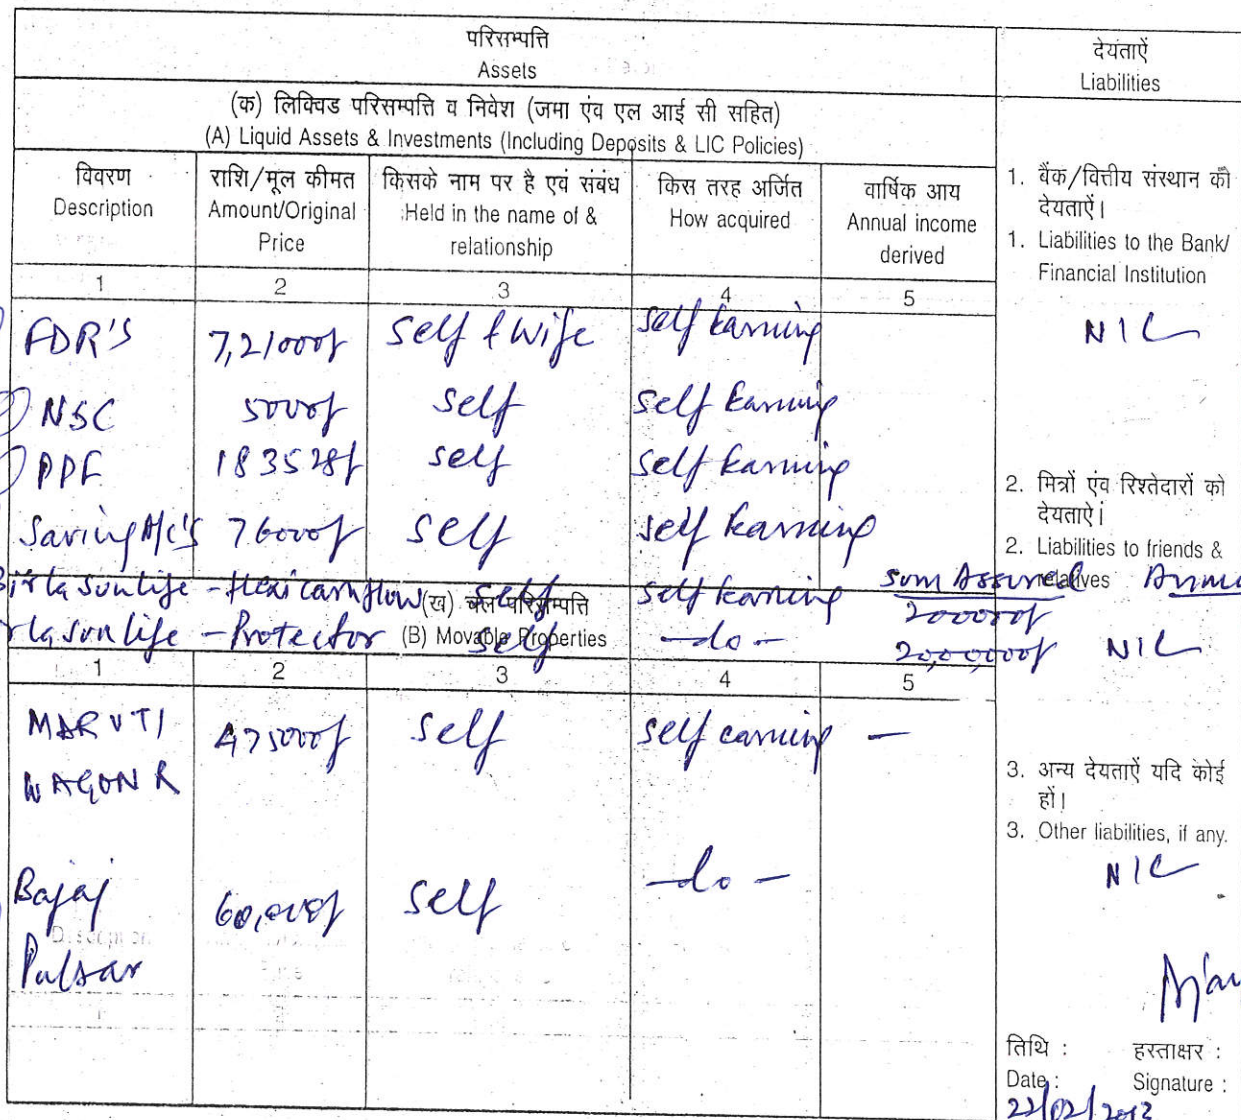 परिसम्पत्ति
Assets
देयताऐं
Liabilities
(क) लिक्विड परिसम्पत्ति व निवेश (जमा एंव एल आई सी सहित)
(A) Liquid Assets & Investments (Including Deposits & LIC Policies)
विवरण
Description
राशि/मूल कीमत
Amount/Original
Price
किसके नाम पर है एवं संबंध
Held in the name of &
relationship
किस तरह अर्जित
How acquired
वार्षिक आय
Annual income
derived
1 2 3 4 5
FDR'S 7,21000/- Self & Wife self Earning
NSC 5000/- self self Earning
PPF 183528/- self self Earning
Saving A/c's 76000/- self self Earning
Birla Sunlife - flexi cashflow self self Earning Sum Assured
200000/-
rla Sun life - Protector self -do- 20,00,000/-
(ख) चल परिसम्पत्ति
(B) Movable Properties
1 2 3 4 5
MARUTI 475000/- self self earning -
WAGON R
Bajaj 60,000/- self -do-
Pulsar
1. बैंक/वित्तीय संस्थान की
देयताऐं।
1. Liabilities to the Bank/
Financial Institution
NIL
2. मित्रों एंव रिश्तेदारों को
देयताऐं।
2. Liabilities to friends &
relatives
NIL
3. अन्य देयताऐं यदि कोई
हों।
3. Other liabilities, if any.
NIL
तिथि : हस्ताक्षर :
Date : Signature :